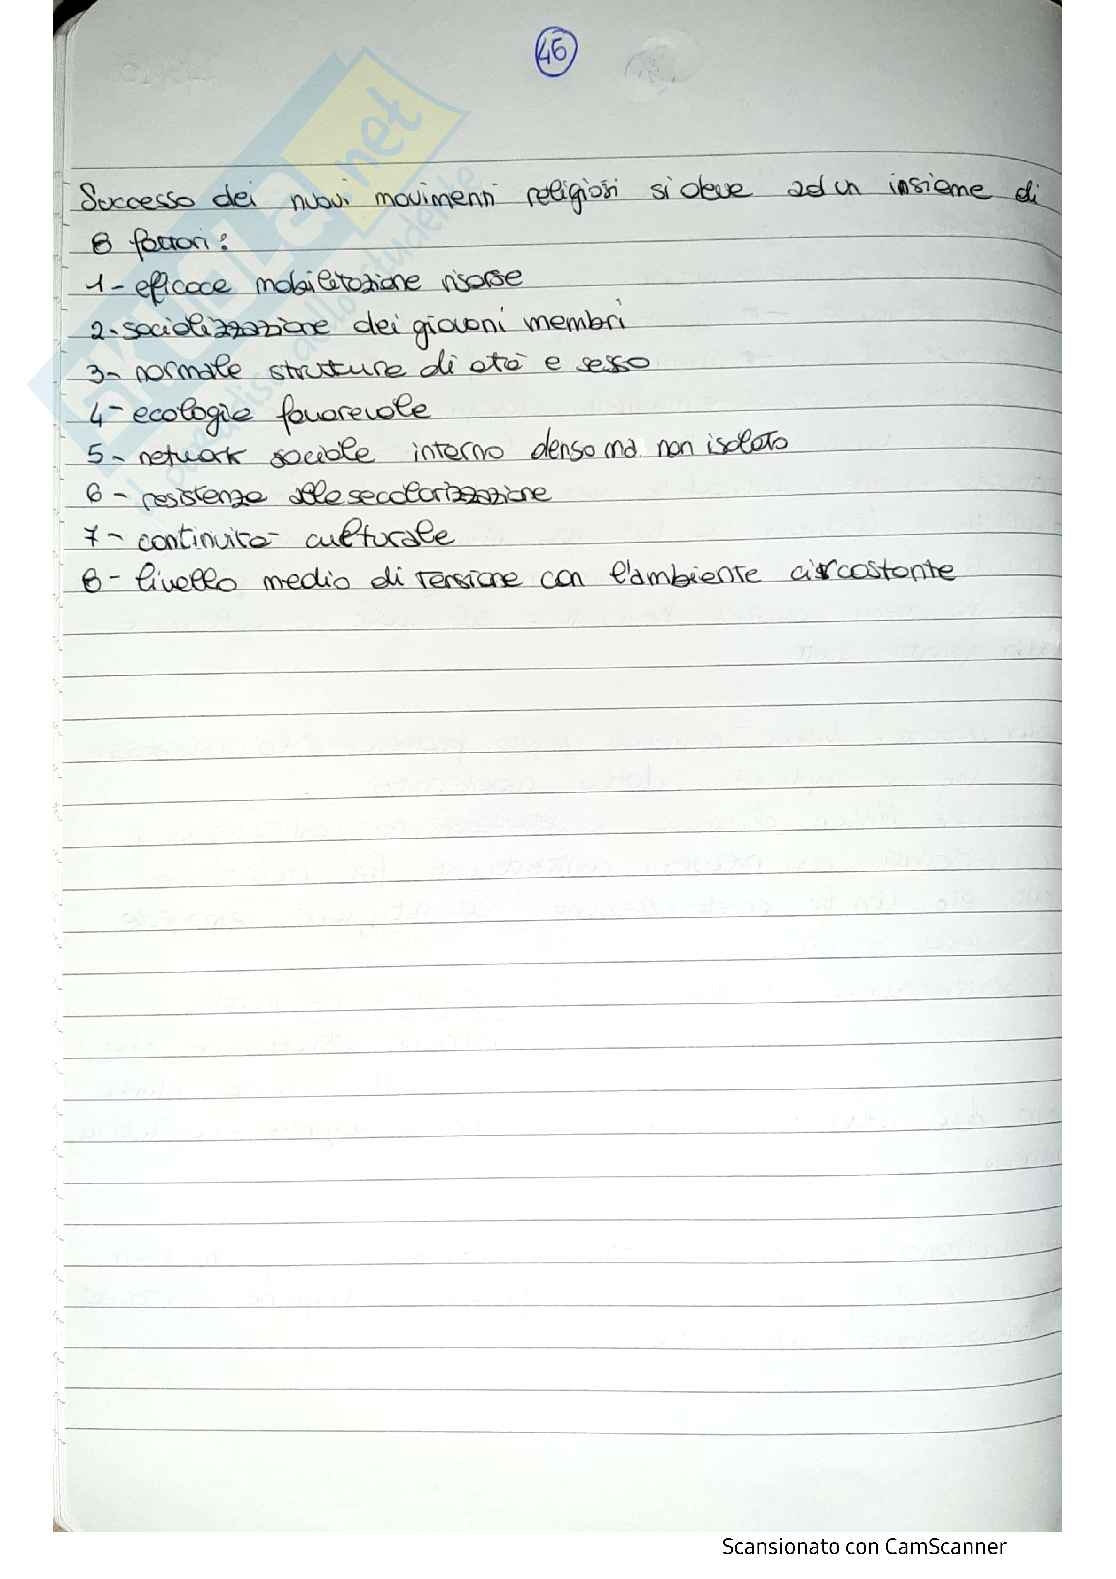 46
Successo dei nuovi movimenti religiosi si deve ad un insieme di
8 fattori:
1- efficace mobilitazione risorse
2- socializzazione dei giovani membri
3- normale struttura di età e sesso
4- ecologia favorevole
5- network sociale interno denso ma non isolato
6- resistenza alla secolarizzazione
7- continuità culturale
8- livello medio di tensione con l'ambiente circostante
SKUOLA.net
il paradiso dello studente
Scansionato con CamScanner